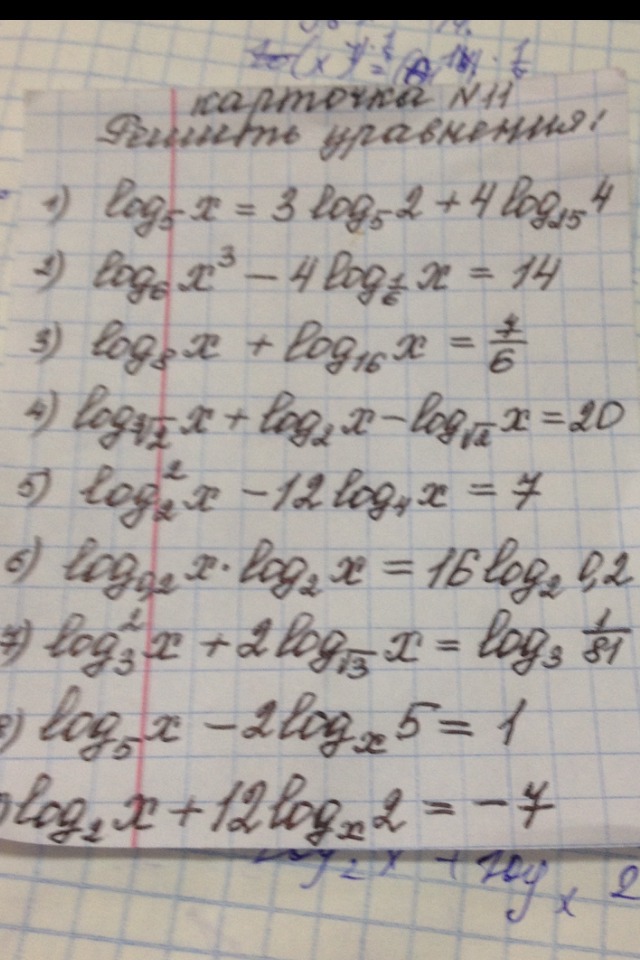 карточка N11
Решить уравнения:
1) log₅ x = 3 log₅ 2 + 4 log₂₅ 4
2) log₆ x³ − 4 log_{1/6} x = 14
3) log₈ x + log₁₆ x = 7/6
4) log_{∛2} x + log₂ x − log_{√2} x = 20
5) log₂² x − 12 log₄ x = 7
6) log₀,₂ x · log₂ x = 16 log₂ 0,2
7) log₃² x + 2 log_{√3} x = log₃ 1/81
8) log₅ x − 2 log_x 5 = 1
) log₂ x + 12 log_x 2 = −7